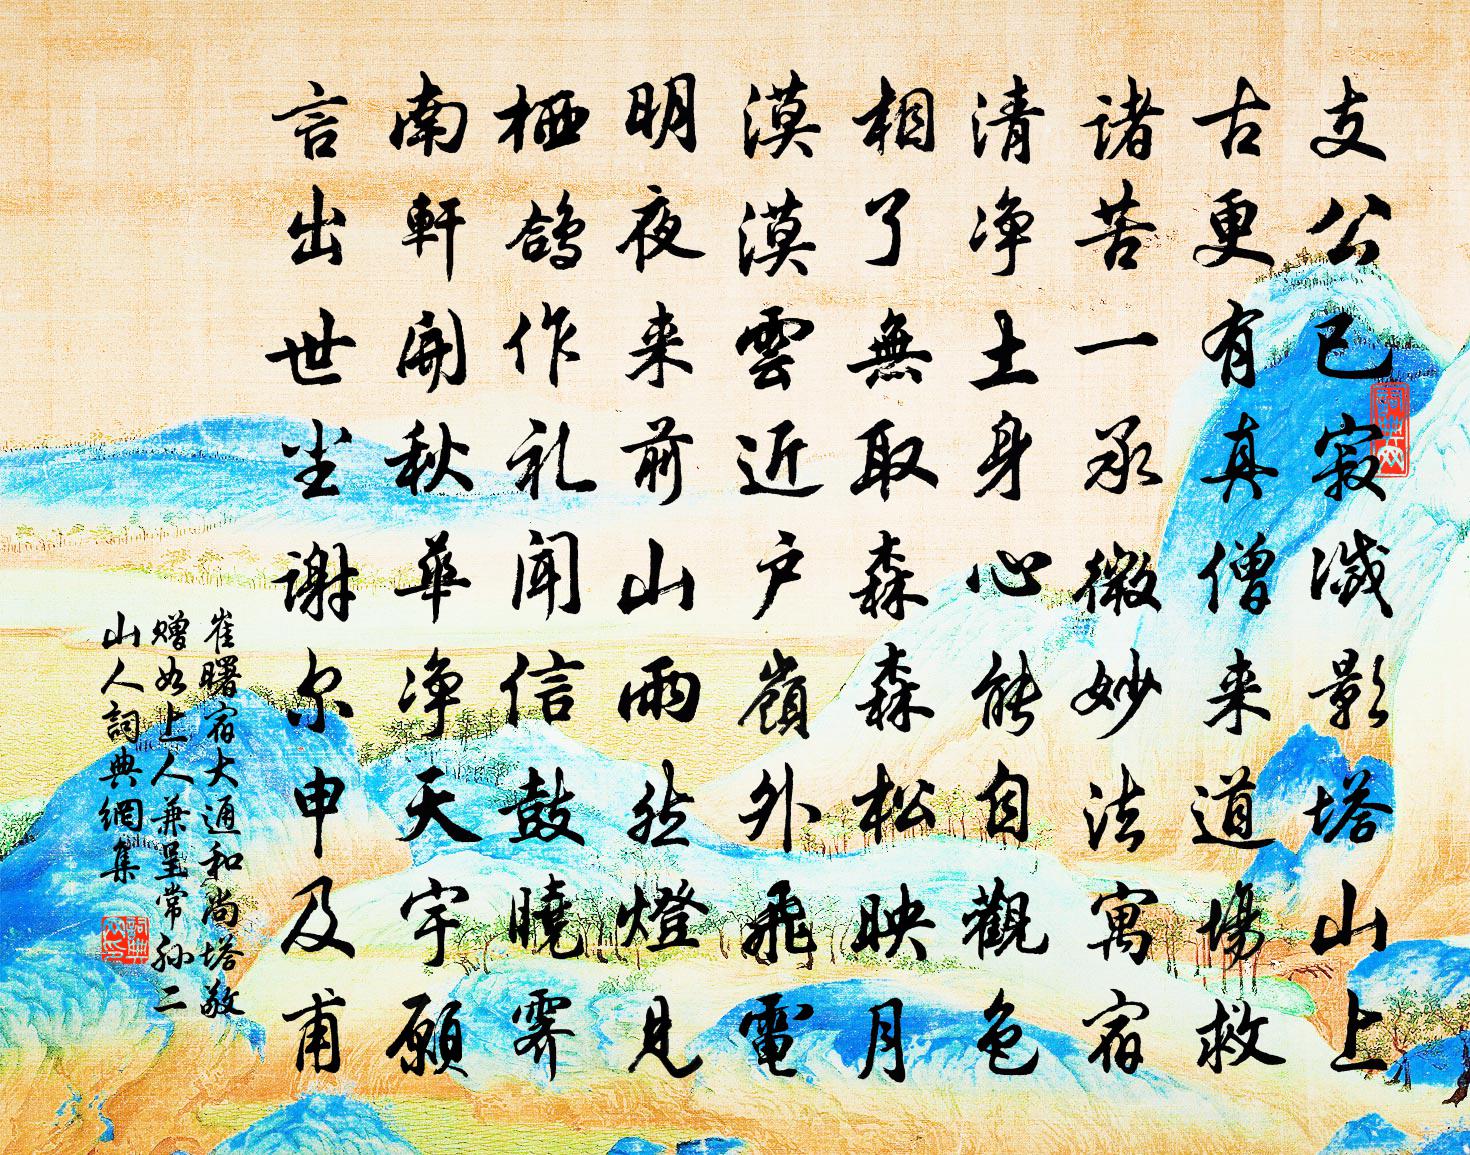 支公已寂滅影塔山上
古更有真僧来道場救
諸苦一承微妙法寓宿
清净土身心能自觀色
相了無取森森松映月
漠漠雲近户嶺外飛電
明夜来前山雨然燈見
栖鴿作礼聞信鼓曉霽
南軒開秋華净天宇願
言出世坐謝尔申及甫
崔曙宿大通和尚塔敬
贈如上人兼呈常孙二
山人詞典網集